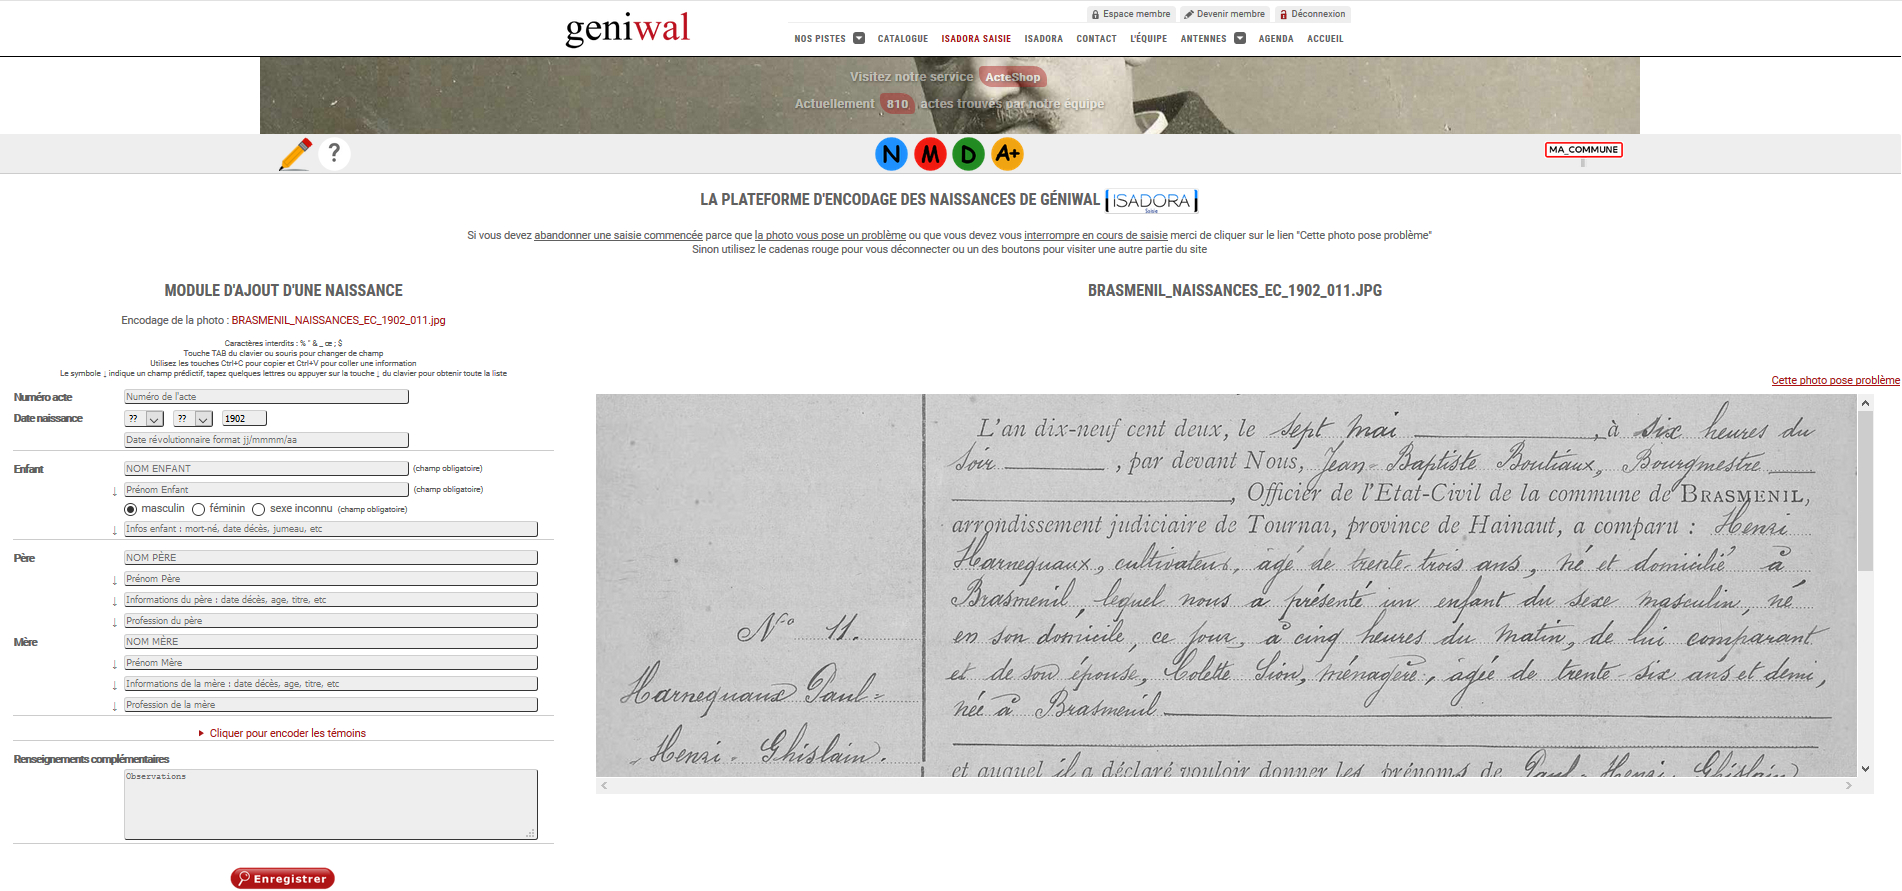 geniwal
Espace membre Devenir membre Déconnexion
NOS PISTES CATALOGUE ISADORA SAISIE ISADORA CONTACT L'ÉQUIPE ANTENNES AGENDA ACCUEIL
Visitez notre service ActeShop
Actuellement 810 actes trouvés par notre équipe
? N M D A+ MA_COMMUNE
LA PLATEFORME D'ENCODAGE DES NAISSANCES DE GÉNIWAL ISADORA Saisie
Si vous devez abandonner une saisie commencée parce que la photo vous pose un problème ou que vous devez vous interrompre en cours de saisie merci de cliquer sur le lien "Cette photo pose problème"
Sinon utilisez le cadenas rouge pour vous déconnecter ou un des boutons pour visiter une autre partie du site
MODULE D'AJOUT D'UNE NAISSANCE
Encodage de la photo : BRASMENIL_NAISSANCES_EC_1902_011.jpg
Caractères interdits : % " & _ œ ; $
Touche TAB du clavier ou souris pour changer de champ
Utilisez les touches Ctrl+C pour copier et Ctrl+V pour coller une information
Le symbole ↓ indique un champ prédictif, tapez quelques lettres ou appuyer sur la touche ↓ du clavier pour obtenir toute la liste
Numéro acte Numéro de l'acte
Date naissance ?? ?? 1902
Date révolutionnaire format jj/mmmm/aa
Enfant NOM ENFANT (champ obligatoire)
↓ Prénom Enfant (champ obligatoire)
masculin féminin sexe inconnu (champ obligatoire)
↓ Infos enfant : mort-né, date décès, jumeau, etc
Père NOM PÈRE
↓ Prénom Père
↓ Informations du père : date décès, age, titre, etc
↓ Profession du père
Mère NOM MÈRE
↓ Prénom Mère
↓ Informations de la mère : date décès, age, titre, etc
↓ Profession de la mère
Cliquer pour encoder les témoins
Renseignements complémentaires
Observations
Enregistrer
BRASMENIL_NAISSANCES_EC_1902_011.JPG
Cette photo pose problème
N° 11.
Harnequaux Paul=
Henri-Ghislain.
L'an dix-neuf cent deux, le sept mai, à six heures du
soir, par devant Nous, Jean-Baptiste Boutiaux, Bourgmestre
, Officier de l'Etat-Civil de la commune de BRASMENIL,
arrondissement judiciaire de Tournai, province de Hainaut, a comparu : Henri
Harnequaux, cultivateur, âgé de trente-trois ans, né et domicilié à
Brasmenil, lequel nous a présenté un enfant du sexe masculin, né
en son domicile, ce jour, à cinq heures du matin, de lui comparant
et de son épouse, Colette Sion, ménagère, âgée de trente-six ans et demi,
née à Brasmenil
et auquel il a déclaré vouloir donner les prénoms de Paul-Henri-Ghislain